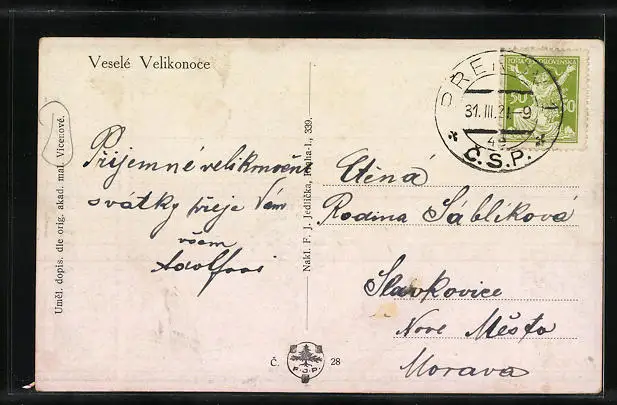 Veselé Velikonoce
Příjemné velikonoční
svátky přeje Vám
všem
Uměl. dopis. dle orig. akad. mal. Vicenové.
Nakl. F. J. Jedlička, Praha-I., 339.
Č. 28
50 50
31.III.21-9
Č.S.P.
Ctěná
Rodina Sáblíková
Slavkovice
Nové Město
Morava